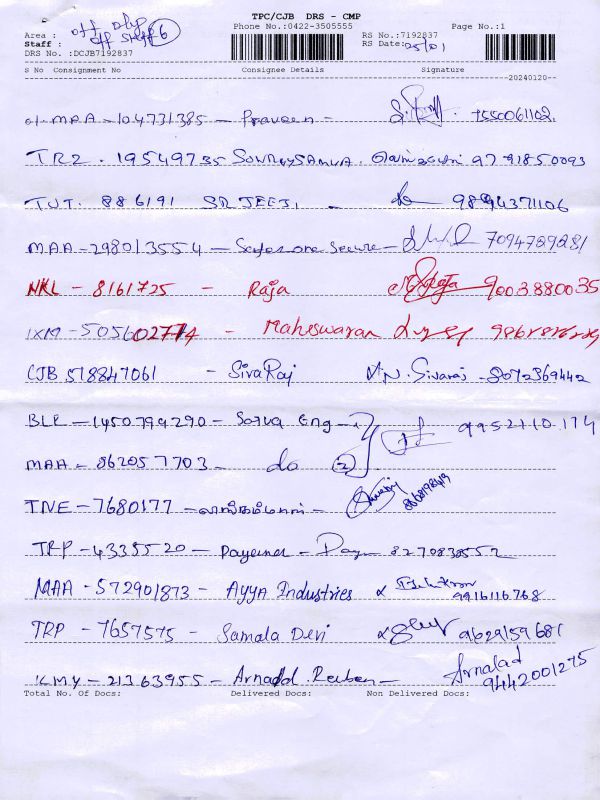 TPC/CJB DRS - CMP
Phone No.:0422-3505555 Page No.:1
Area : off dlp
Staff : off staff 6
RS No.:7192837
RS Date: 25/01
DRS No. :DCJB7192837
S No Consignment No Consignee Details Signature
--20240120--
MAA - 104731385 - Praveen - 7550061102.
TRZ . 19549735 97 91850093
TUT. 886191 SR JEEJI - 9894371106
MAA - 298013554 - Safezone Secure - 7094729281
NKL - 8161725 - Raja Raja 9003880035
IXM - 505602774 - Maheswaran
CJB 518847061 - Siva Raj N. Sivaraj - 8072369442
BLR - 1450794290 - Eng - 9952110.174
MAA - 862057703 - do 2
TNE - 7680177 -
TRP - 4335520 - 8270838552
MAA - 572901873 - Ayya Industries 9916116768
TRP - 7657575 - Samala Devi 9629159681
KMY - 21363955 - Arnald . Reuben - Arnalad
9442001275
Total No. Of Docs: Delivered Docs: Non Delivered Docs: